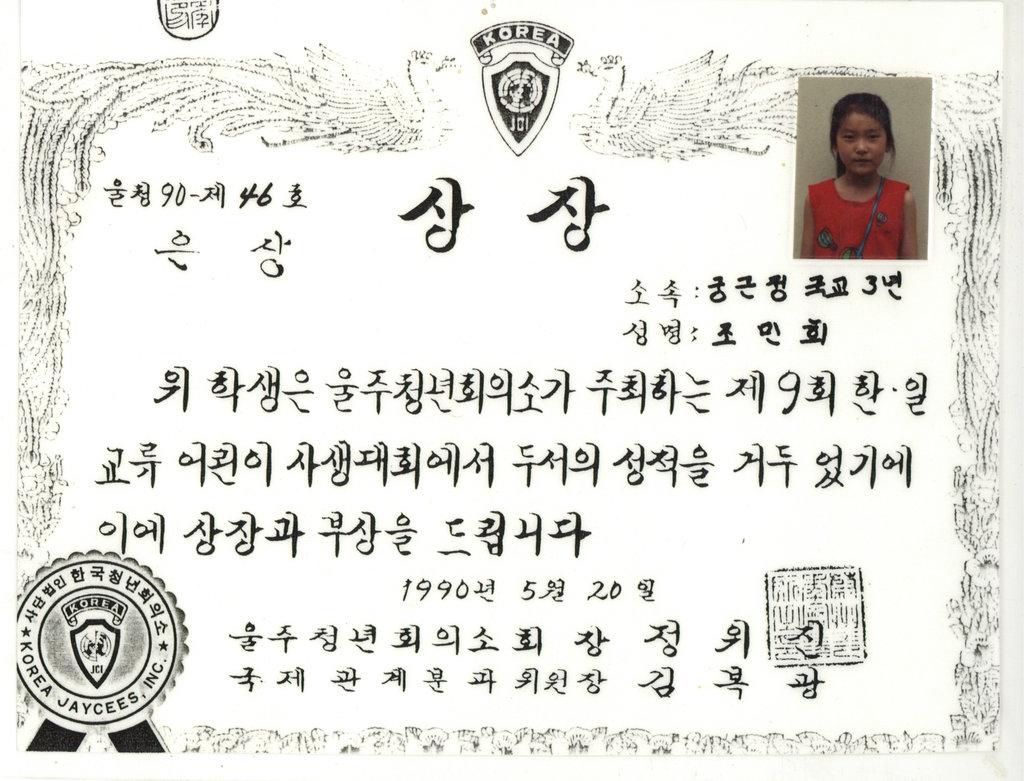 KOREA
JCI
울청 90-제 46 호
상 장
은 상
소 속 : 궁근정 국교 3년
성 명 : 조 민 희
위 학생은 울주청년회의소가 주최하는 제 9회 한·일
교류 어린이 사생대회에서 두서의 성적을 거두 었기에
이에 상장과 부상을 드립니다
1990년 5월 20일
울주청년회의소회 장 정 위 진
국제관계분과위원장 김 복 광
★ 사단법인 한국청년회의소 ★
KOREA JAYCEES, INC.
KOREA
JCI